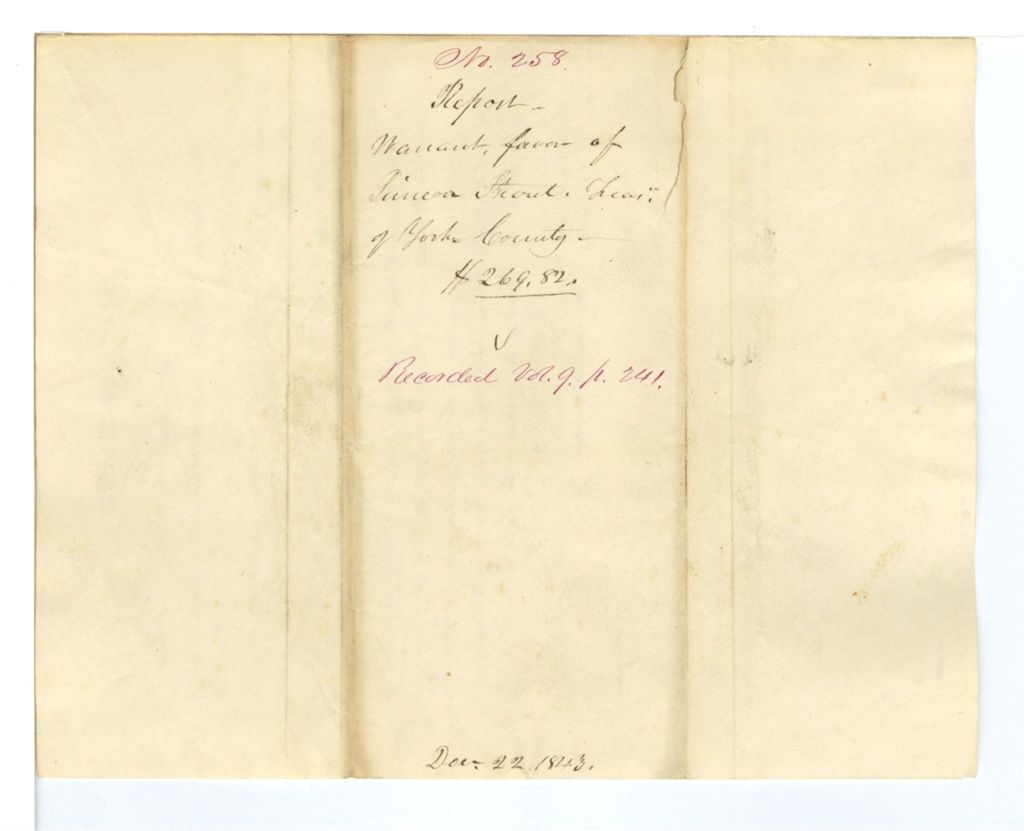 No. 258.
Report -
Warrant, favor of
Simeon Strout. Treasr.
of York County -
$269.82.
Recorded Vol. 9. p. 241.
Dec 22 1843.